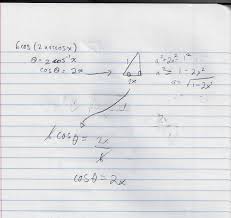 6 cos (2 arccos x)
θ = 2 cos⁻¹x
cos θ = 2x
1
2x
a² + 2x² = 1²
a² = 1 - 2x²
a = √1-2x²
cos θ = 2x
cos θ = 2x